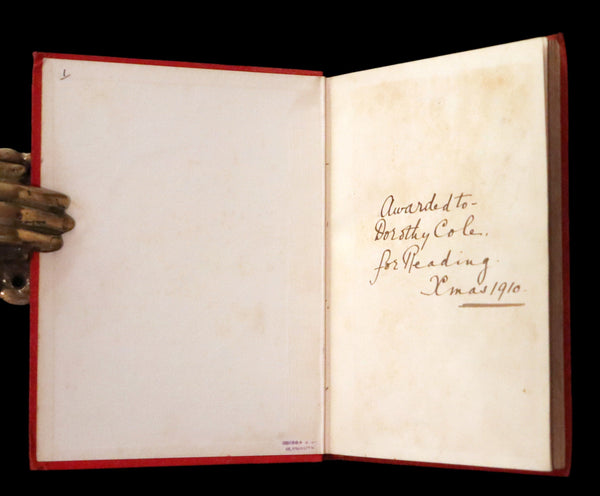 Awarded to-
Dorothy Cole.
for Reading.
Xmas 1910.